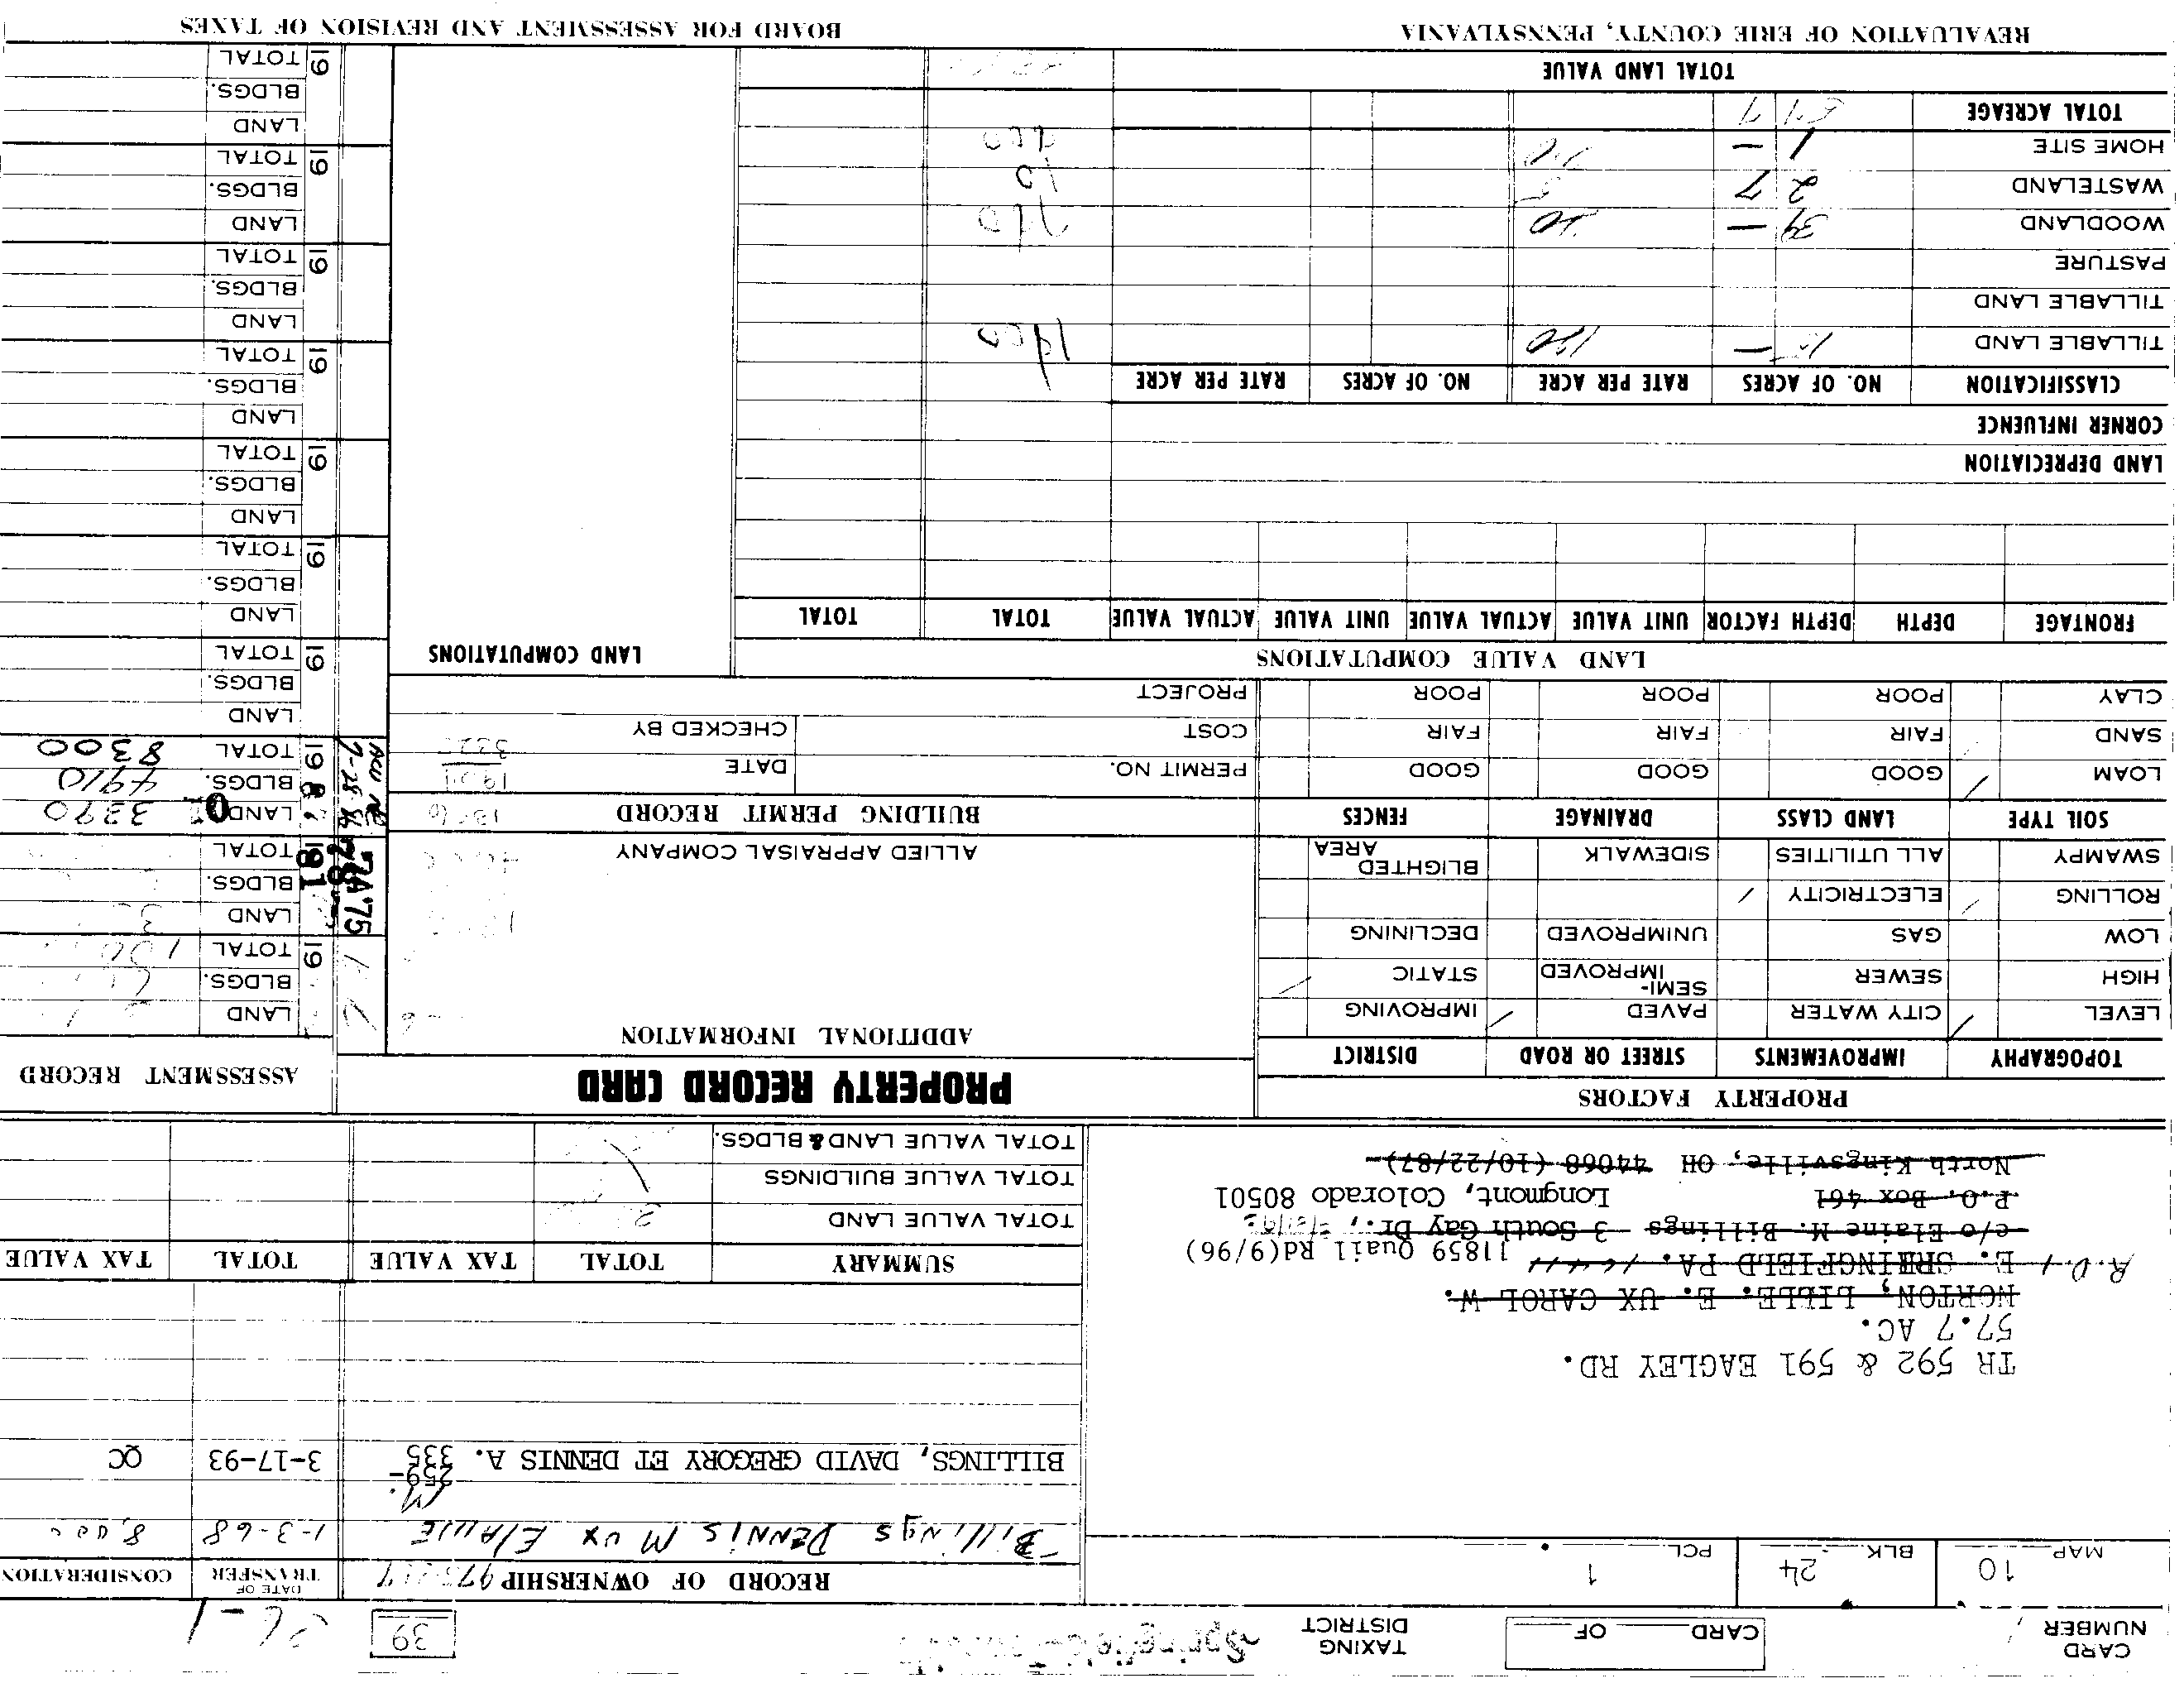 CARD NUMBER
CARD OF
TAXING DISTRICT Springfield
39
MAP 10 BLK. 24 PCL. 1
RECORD OF OWNERSHIP
DATE OF TRANSFER
CONSIDERATION
Billings DENNIS M UX ELAINE 1-3-68 8,000
BILLINGS, DAVID GREGORY ET DENNIS A. 259-335 3-17-93 QC
TR 592 & 591 EAGLEY RD.
57.7 AC.
NORTON, LILLE. E. UX CAROL W.
R.D.1 E. SPRINGFIELD PA. 16411 11859 Quail Rd(9/96)
c/o Elaine M. Billings 3 South Gay Dr.,
P.O. Box 461 Longmont, Colorado 80501
North Kingsville, OH 44068 (10/22/87)
SUMMARY TOTAL TAX VALUE TOTAL TAX VALUE
TOTAL VALUE LAND
TOTAL VALUE BUILDINGS
TOTAL VALUE LAND & BLDGS.
PROPERTY FACTORS
PROPERTY RECORD CARD
ASSESSMENT RECORD
TOPOGRAPHY IMPROVEMENTS STREET OR ROAD DISTRICT
LEVEL CITY WATER PAVED IMPROVING
HIGH SEWER SEMI-IMPROVED STATIC
LOW GAS UNIMPROVED DECLINING
ROLLING ELECTRICITY
SWAMPY ALL UTILITIES SIDEWALK BLIGHTED AREA
SOIL TYPE LAND CLASS DRAINAGE FENCES
LOAM GOOD GOOD GOOD
SAND FAIR FAIR FAIR
CLAY POOR POOR POOR
ADDITIONAL INFORMATION
ALLIED APPRAISAL COMPANY
BUILDING PERMIT RECORD
PERMIT NO. DATE
COST CHECKED BY
PROJECT
LAND
BLDGS.
19 TOTAL
'75
78
81
LAND
BLDGS.
19 TOTAL
LAND 3390
BLDGS. 4910
19 86 TOTAL 8300
LAND
BLDGS.
19 TOTAL
LAND
BLDGS.
19 TOTAL
LAND
BLDGS.
19 TOTAL
LAND
BLDGS.
19 TOTAL
LAND
BLDGS.
19 TOTAL
LAND
BLDGS.
19 TOTAL
LAND
BLDGS.
19 TOTAL
LAND VALUE COMPUTATIONS
LAND COMPUTATIONS
FRONTAGE DEPTH DEPTH FACTOR UNIT VALUE ACTUAL VALUE UNIT VALUE ACTUAL VALUE TOTAL TOTAL
LAND DEPRECIATION
CORNER INFLUENCE
CLASSIFICATION NO. OF ACRES RATE PER ACRE NO. OF ACRES RATE PER ACRE
TILLABLE LAND 15 - 120
TILLABLE LAND
PASTURE
WOODLAND 39 - 20
WASTELAND 2 7
HOME SITE 1 -
TOTAL ACREAGE 57 7
TOTAL LAND VALUE
REVALUATION OF ERIE COUNTY, PENNSYLVANIA
BOARD FOR ASSESSMENT AND REVISION OF TAXES